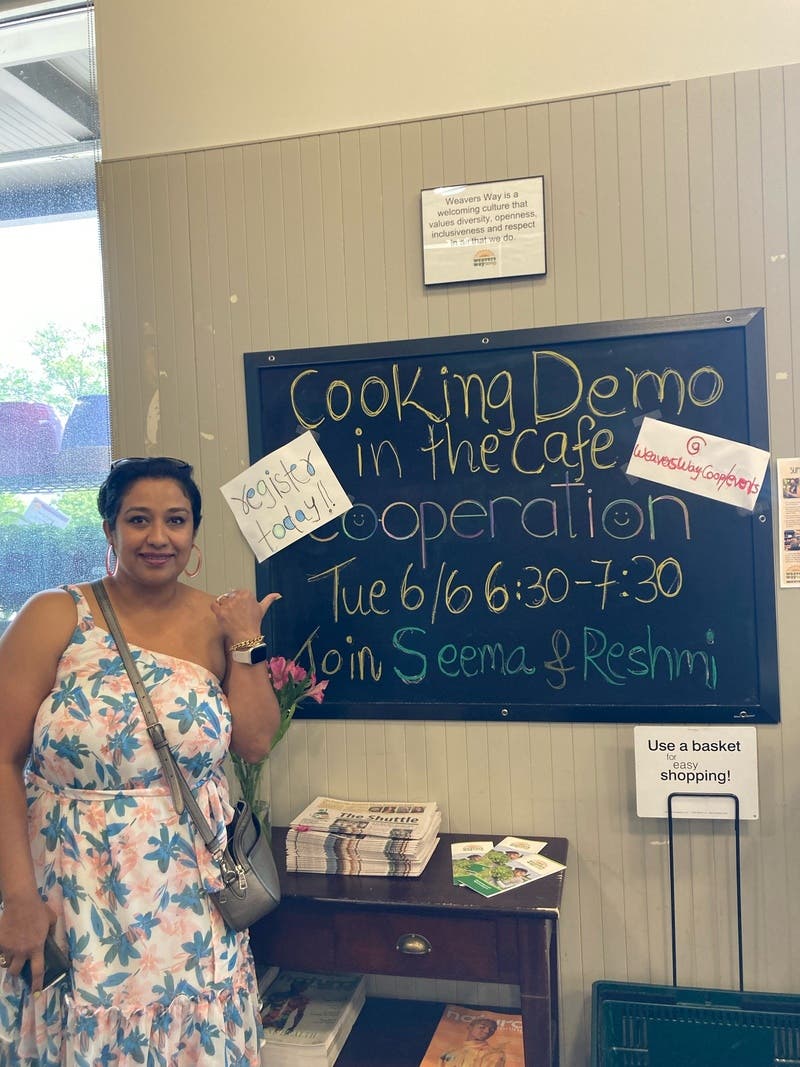 Weavers Way is a
welcoming culture that
values diversity, openness,
inclusiveness and respect
in all that we do.
weavers
way
Cooking Demo
in the Cafe
register
today!!
@
WeaversWayCoop/events
Cooperation
Tue 6/6 6:30-7:30
Join Seema & Reshmi
Use a basket
for
easy
shopping!
The Shuttle